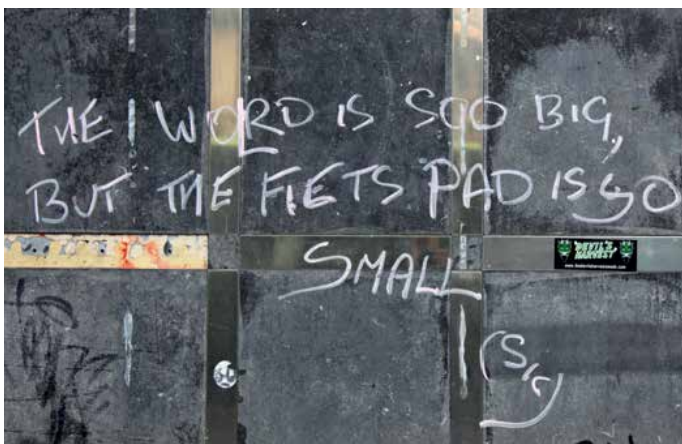 THE WORD IS SOO BIG,
BUT THE FIETS PAD IS SO
SMALL
DEVIL'S
HARVEST
(Sic)